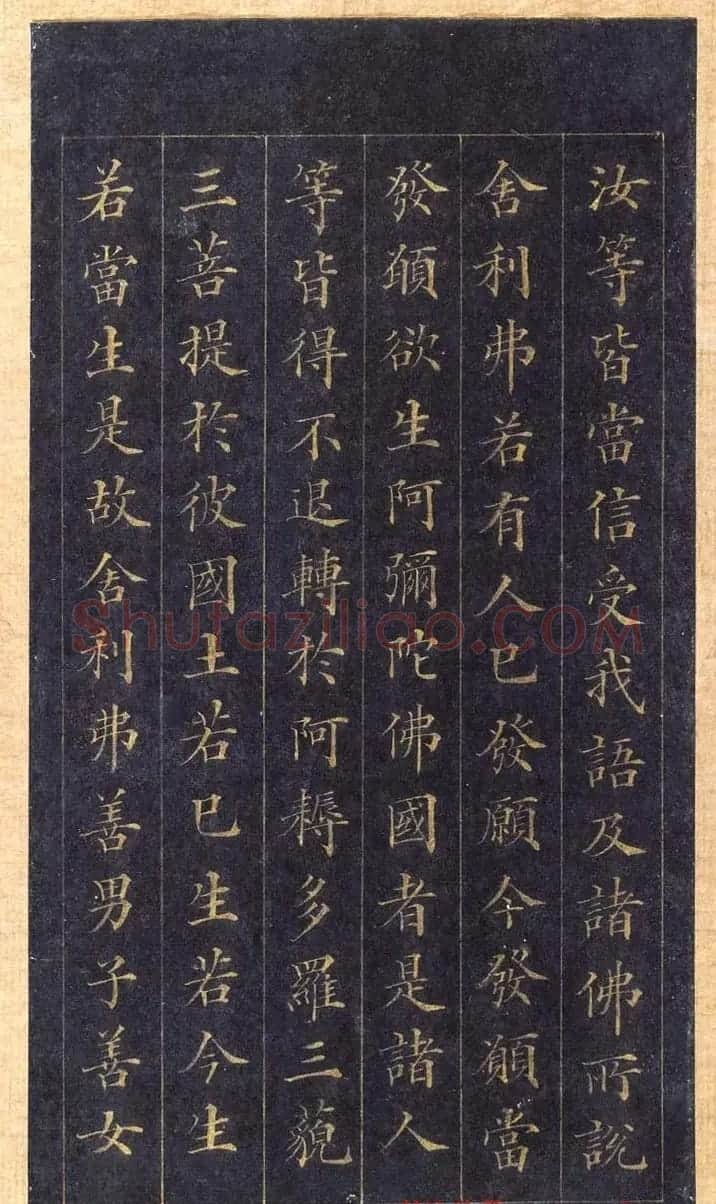 汝等皆當信受我語及諸佛所說
舍利弗若有人已發願今發願當
發願欲生阿彌陀佛國者是諸人
等皆得不退轉於阿耨多羅三藐
三菩提於彼國土若已生若今生
若當生是故舍利弗善男子善女
Shufaziliao.COM